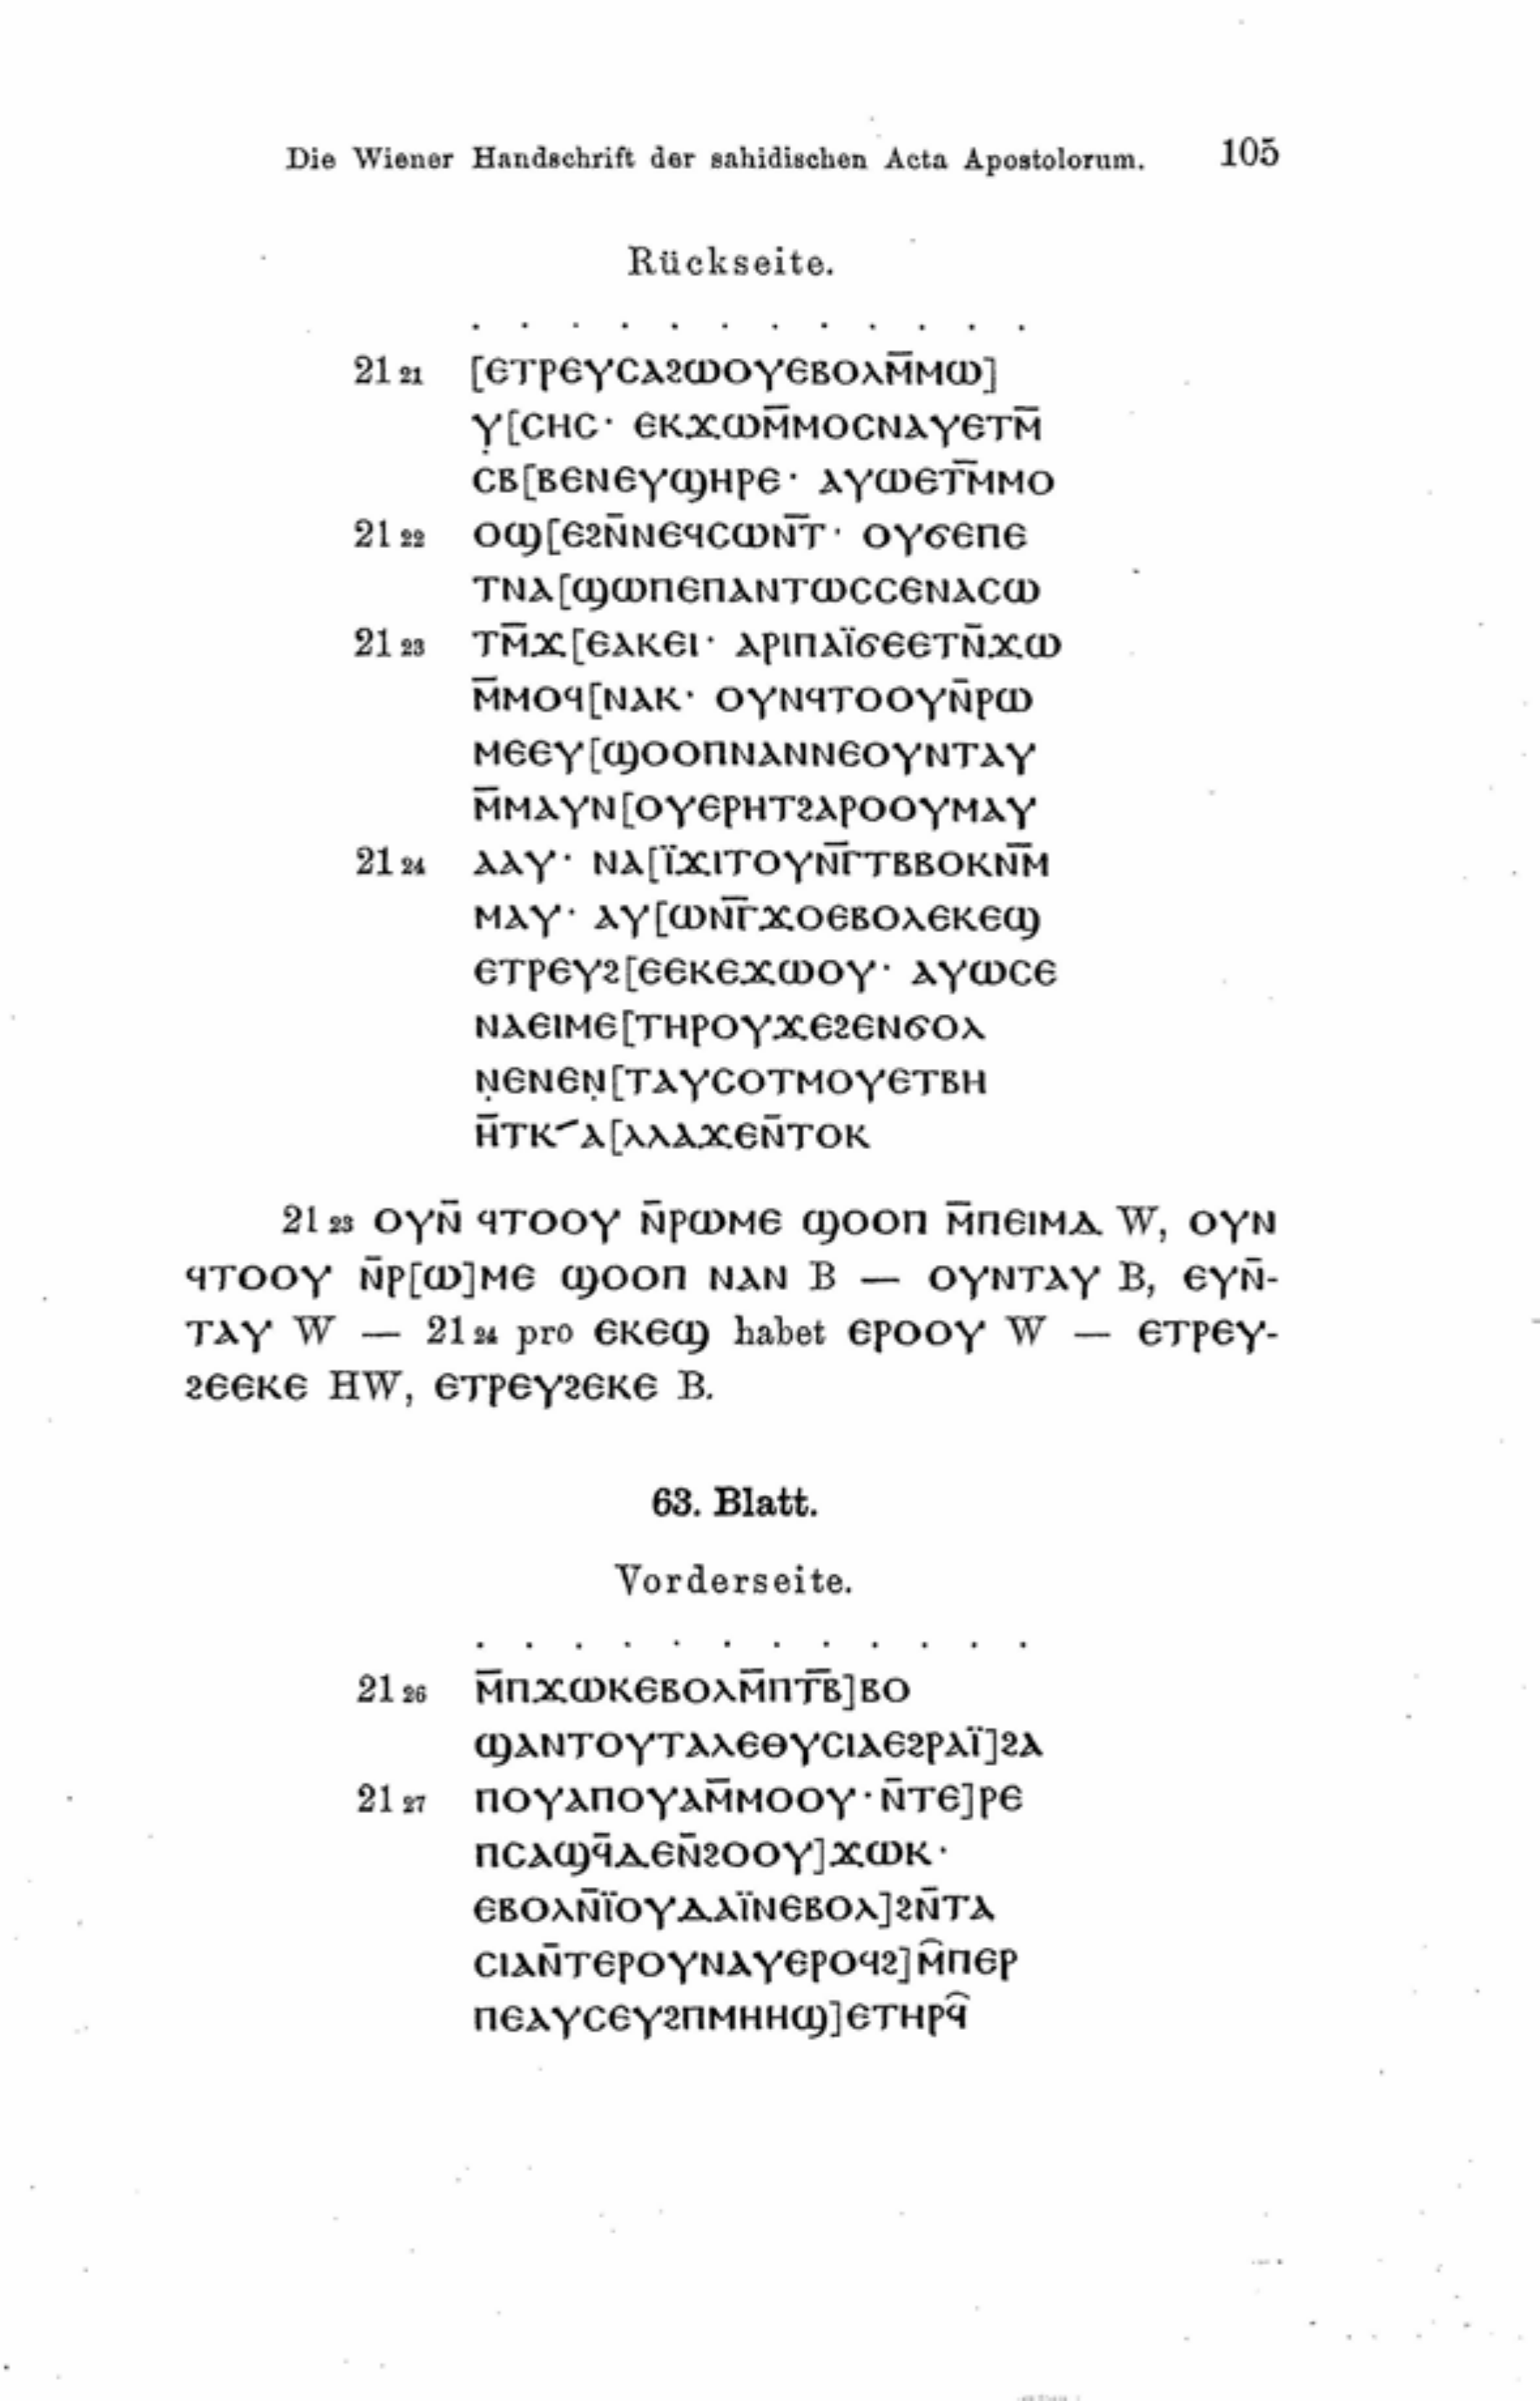 Die Wiener Handschrift der sahidischen Acta Apostolorum. 105
Rückseite.
. . . . . . . . . . . .
21 21 [ⲉⲧⲣⲉⲩⲥⲁϩⲱⲟⲩⲉⲃⲟⲗⲙ̄ⲙⲱ]
ⲩ̣[ⲥⲏⲥ· ⲉⲕϫⲱⲙ̄ⲙⲟⲥⲛⲁⲩⲉⲧⲙ̄
ⲥⲃ[ⲃⲉⲛⲉⲩϣⲏⲣⲉ· ⲁⲩⲱⲉⲧⲙ̄ⲙⲟ
21 22 ⲟϣ[ⲉϩⲛ̄ⲛⲉϥⲥⲱⲛ̄ⲧ· ⲟⲩϭⲉⲡⲉ
ⲧⲛⲁ[ϣⲱⲡⲉⲡⲁⲛⲧⲱⲥⲥⲉⲛⲁⲥⲱ
21 23 ⲧⲙ̄ϫ[ⲉⲁⲕⲉⲓ· ⲁⲣⲓⲡⲁⲓ̈ϭⲉⲉⲧⲛ̄ϫⲱ
ⲙ̄ⲙⲟϥ[ⲛⲁⲕ· ⲟⲩⲛϥⲧⲟⲟⲩⲛ̄ⲣⲱ
ⲙⲉⲉⲩ[ϣⲟⲟⲡⲛⲁⲛⲛⲉⲟⲩⲛⲧⲁⲩ
ⲙ̄ⲙⲁⲩⲛ[ⲟⲩⲉⲣⲏⲧϩⲁⲣⲟⲟⲩⲙⲁⲩ
21 24 ⲁⲁⲩ· ⲛⲁ[ⲓ̈ϫⲓⲧⲟⲩⲛ̄ⲅⲧⲃⲃⲟⲕⲛ̄ⲙ
ⲙⲁⲩ· ⲁⲩ[ⲱⲛ̄ⲅϫⲟⲉⲃⲟⲗⲉⲕⲉϣ
ⲉⲧⲣⲉⲩϩ[ⲉⲉⲕⲉϫⲱⲟⲩ· ⲁⲩⲱⲥⲉ
ⲛⲁⲉⲓⲙⲉ[ⲧⲏⲣⲟⲩϫⲉϩⲉⲛϭⲟⲗ
ⲛ̣ⲉⲛⲉⲛ̣[ⲧⲁⲩⲥⲟⲧⲙⲟⲩⲉⲧⲃⲏ
ⲏ̄ⲧⲕ⸍ⲁ[ⲗⲗⲁϫⲉⲛ̄ⲧⲟⲕ
21 23 ⲟⲩⲛ̄ ϥⲧⲟⲟⲩ ⲛ̄ⲣⲱⲙⲉ ϣⲟⲟⲡ ⲙ̄ⲡⲉⲓⲙⲁ W, ⲟⲩⲛ
ϥⲧⲟⲟⲩ ⲛ̄ⲣ[ⲱ]ⲙⲉ ϣⲟⲟⲡ ⲛⲁⲛ B — ⲟⲩⲛⲧⲁⲩ B, ⲉⲩⲛ̄-
ⲧⲁⲩ W — 21 24 pro ⲉⲕⲉϣ habet ⲉⲣⲟⲟⲩ W — ⲉⲧⲣⲉⲩ-
ϩⲉⲉⲕⲉ HW, ⲉⲧⲣⲉⲩϩⲉⲕⲉ B.
63. Blatt.
Vorderseite.
. . . . . . . . . . . .
21 26 ⲙ̄ⲡϫⲱⲕⲉⲃⲟⲗⲙ̄ⲡⲧⲃ̄]ⲃⲟ
ϣⲁⲛⲧⲟⲩⲧⲁⲗⲉⲑⲩⲥⲓⲁⲉϩⲣⲁⲓ̈]ϩⲁ
21 27 ⲡⲟⲩⲁⲡⲟⲩⲁⲙ̄ⲙⲟⲟⲩ·ⲛ̄ⲧⲉ]ⲣⲉ
ⲡⲥⲁϣϥ̄ⲇⲉⲛ̄ϩⲟⲟⲩ]ϫⲱⲕ·
ⲉⲃⲟⲗⲛ̄ⲓ̈ⲟⲩⲇⲁⲓ̈ⲛⲉⲃⲟⲗ]ϩⲛ̄ⲧⲁ
ⲥⲓⲁⲛ̄ⲧⲉⲣⲟⲩⲛⲁⲩⲉⲣⲟϥϩ]ⲙ̑ⲡⲉⲣ
ⲡⲉⲁⲩⲥⲉⲩϩⲡⲙⲏⲏϣ]ⲉⲧⲏⲣϥ̑